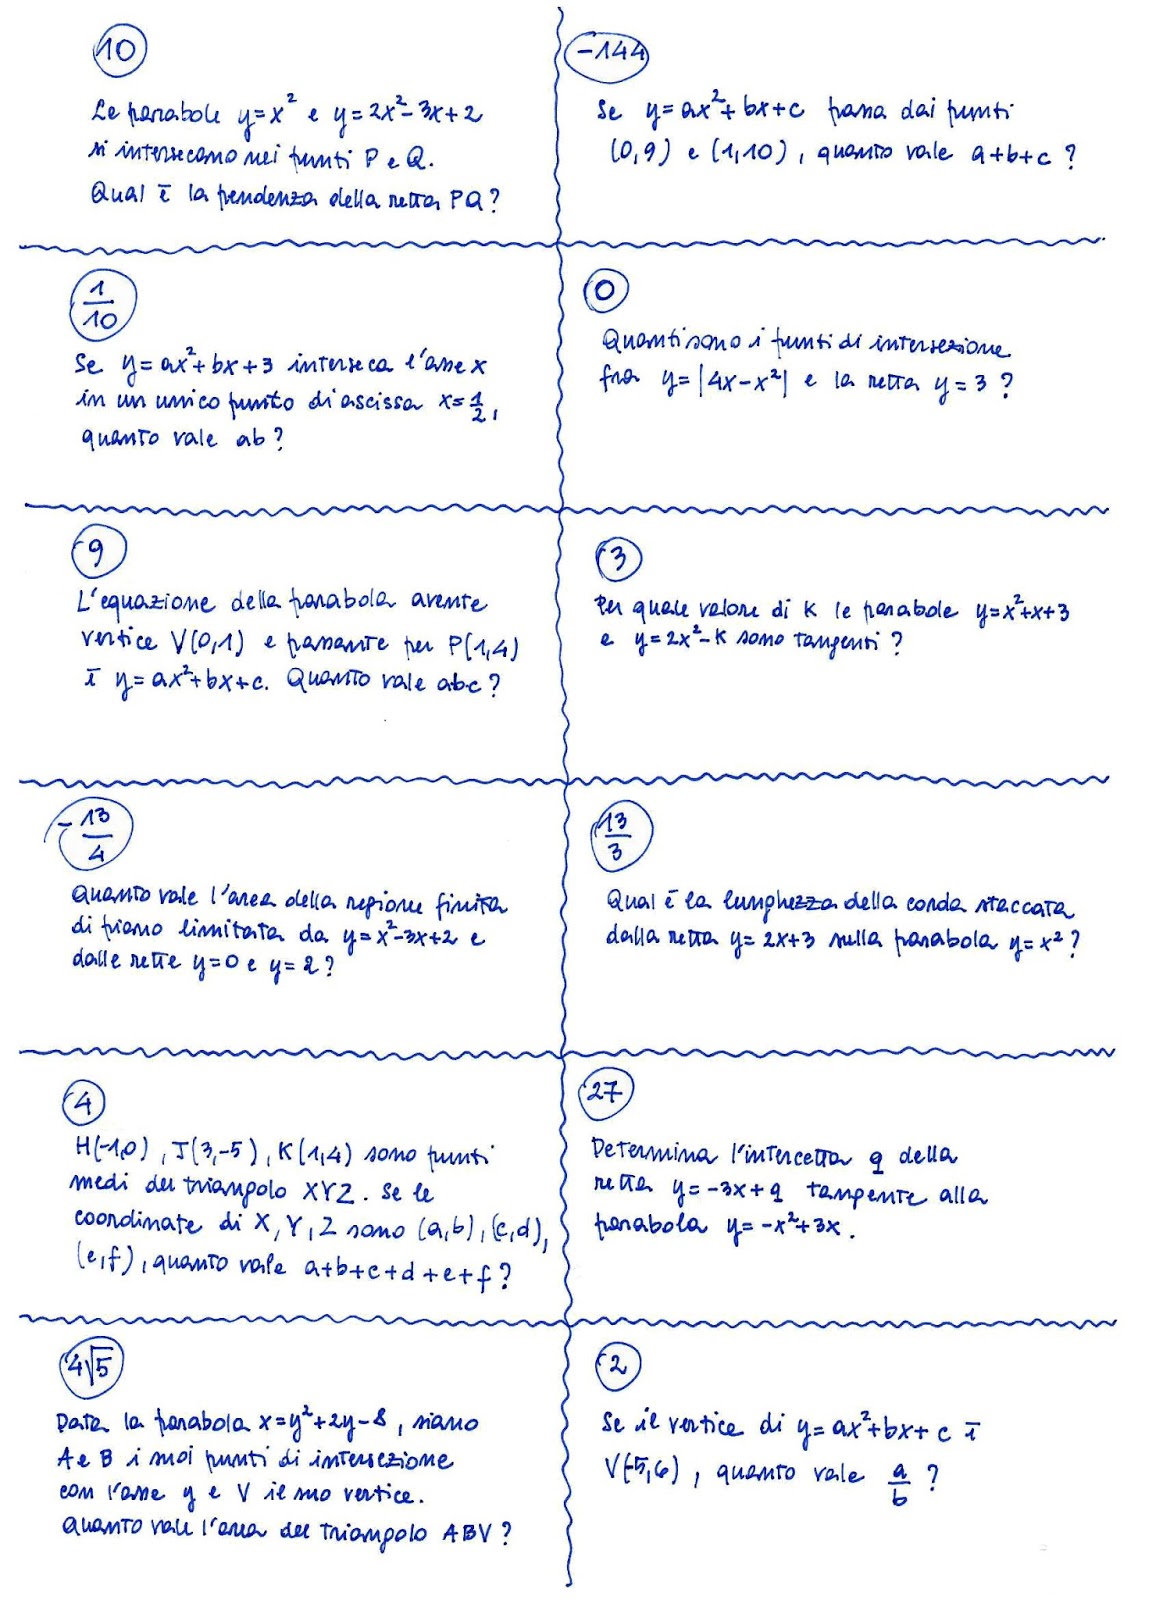 10
Le parabole y=x² e y=2x²-3x+2
si intersecano nei punti P e Q.
Qual è la pendenza della retta PQ?
-144
Se y=ax²+bx+c passa dai punti
(0,9) e (1,10), quanto vale a+b+c?
1/10
Se y=ax²+bx+3 interseca l'asse x
in un unico punto di ascissa x=1/2,
quanto vale ab?
0
Quanti sono i punti di intersezione
fra y=|4x-x²| e la retta y=3?
9
L'equazione della parabola avente
vertice V(0,1) e passante per P(1,4)
è y=ax²+bx+c. Quanto vale abc?
3
Per quale valore di K le parabole y=x²+x+3
e y=2x²-K sono tangenti?
-13/4
Quanto vale l'area della regione finita
di piano limitata da y=x²-3x+2 e
dalle rette y=0 e y=2?
13/3
Qual è la lunghezza della corda staccata
dalla retta y=2x+3 sulla parabola y=x²?
4
H(-1,0), J(3,-5), K(1,4) sono punti
medi del triangolo XYZ. Se le
coordinate di X,Y,Z sono (a,b),(c,d),
(e,f), quanto vale a+b+c+d+e+f?
27
Determina l'intercetta q della
retta y=-3x+q tangente alla
parabola y=-x²+3x.
4√5
Data la parabola x=y²+2y-8, siano
A e B i suoi punti di intersezione
con l'asse y e V il suo vertice.
Quanto vale l'area del triangolo ABV?
2
Se il vertice di y=ax²+bx+c è
V(-5,6), quanto vale a/b?